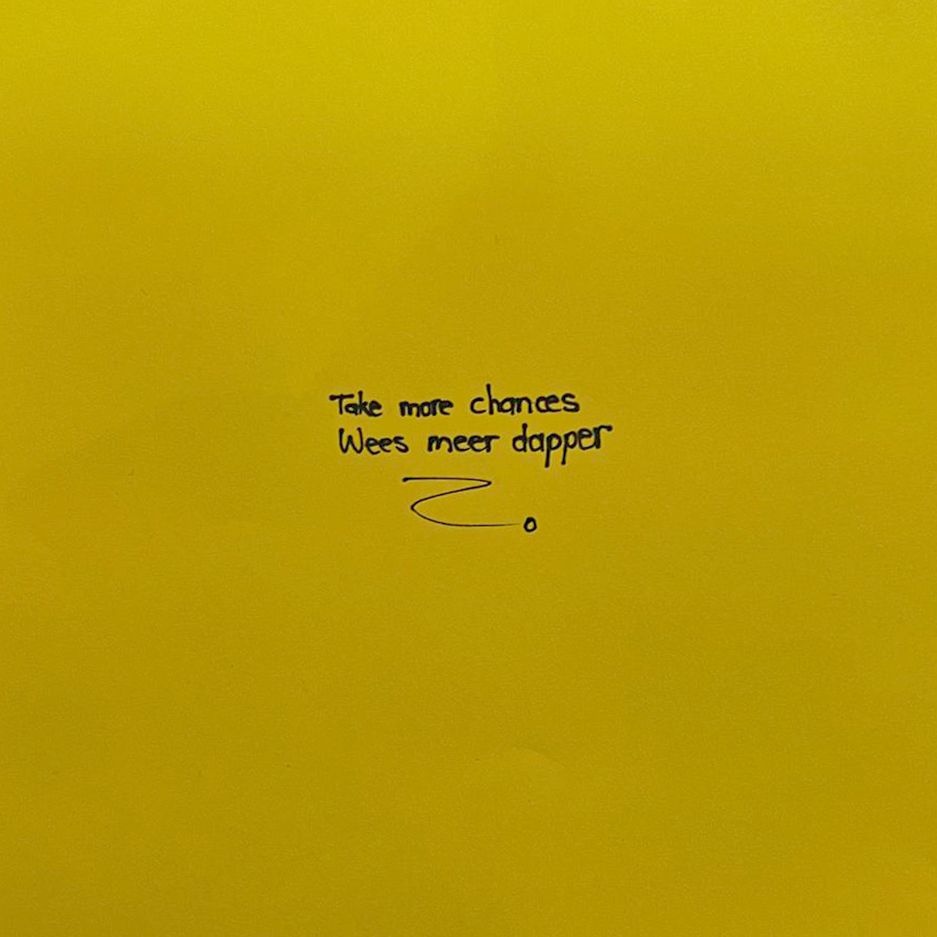 Take more chances
Wees meer dapper